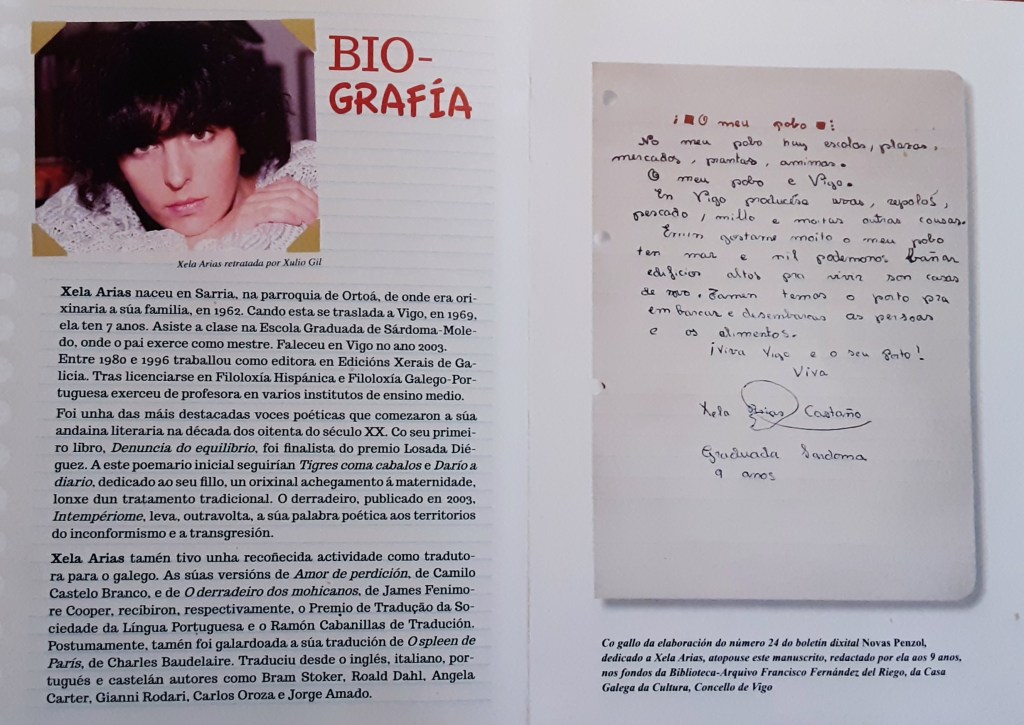 BIO-
GRAFÍA
Xela Arias retratada por Xulio Gil
Xela Arias naceu en Sarria, na parroquia de Ortoá, de onde era ori-
xinaria a súa familia, en 1962. Cando esta se traslada a Vigo, en 1969,
ela ten 7 anos. Asiste a clase na Escola Graduada de Sárdoma-Mole-
do, onde o pai exerce como mestre. Faleceu en Vigo no ano 2003.
Entre 1980 e 1996 traballou como editora en Edicións Xerais de Ga-
licia. Tras licenciarse en Filoloxía Hispánica e Filoloxía Galego-Por-
tuguesa exerceu de profesora en varios institutos de ensino medio.
Foi unha das máis destacadas voces poéticas que comezaron a súa
andaina literaria na década dos oitenta do século XX. Co seu primei-
ro libro, Denuncia do equilibrio, foi finalista do premio Losada Dié-
guez. A este poemario inicial seguirían Tigres coma cabalos e Darío a
diario, dedicado ao seu fillo, un orixinal achegamento á maternidade,
lonxe dun tratamento tradicional. O derradeiro, publicado en 2003,
Intempériome, leva, outravolta, a súa palabra poética aos territorios
do inconformismo e a transgresión.
Xela Arias tamén tivo unha recoñecida actividade como traduto-
ra para o galego. As súas versións de Amor de perdición, de Camilo
Castelo Branco, e de O derradeiro dos mohicanos, de James Fenimo-
re Cooper, recibiron, respectivamente, o Premio de Tradução da So-
ciedade da Língua Portuguesa e o Ramón Cabanillas de Tradución.
Postumamente, tamén foi galardoada a súa tradución de O spleen de
París, de Charles Baudelaire. Traduciu desde o inglés, italiano, por-
tugués e castelán autores como Bram Stoker, Roald Dahl, Angela
Carter, Gianni Rodari, Carlos Oroza e Jorge Amado.
¡ O meu pobo :
No meu pobo huy escolas, plazas,
mercados, prantas, animas.
O meu pobo e Vigo.
En Vigo producése uvas, repolos,
pescado, millo e moitas outras cousas.
gustame moito o meu pobo
ten mar e nil podemonos bañar
edificios altos pra vivir son casas
de novo. Tamen temos o porto pra
embarcar e desembarcar as persoas
e os alimentos.
¡Viva Vigo e o seu porto!
Viva
Xela Arias Castaño
Graduada Sardoma
9 anos
Co gallo da elaboración do número 24 do boletín dixital Novas Penzol,
dedicado a Xela Arias, atopouse este manuscrito, redactado por ela aos 9 anos,
nos fondos da Biblioteca-Arquivo Francisco Fernández del Riego, da Casa
Galega da Cultura, Concello de Vigo